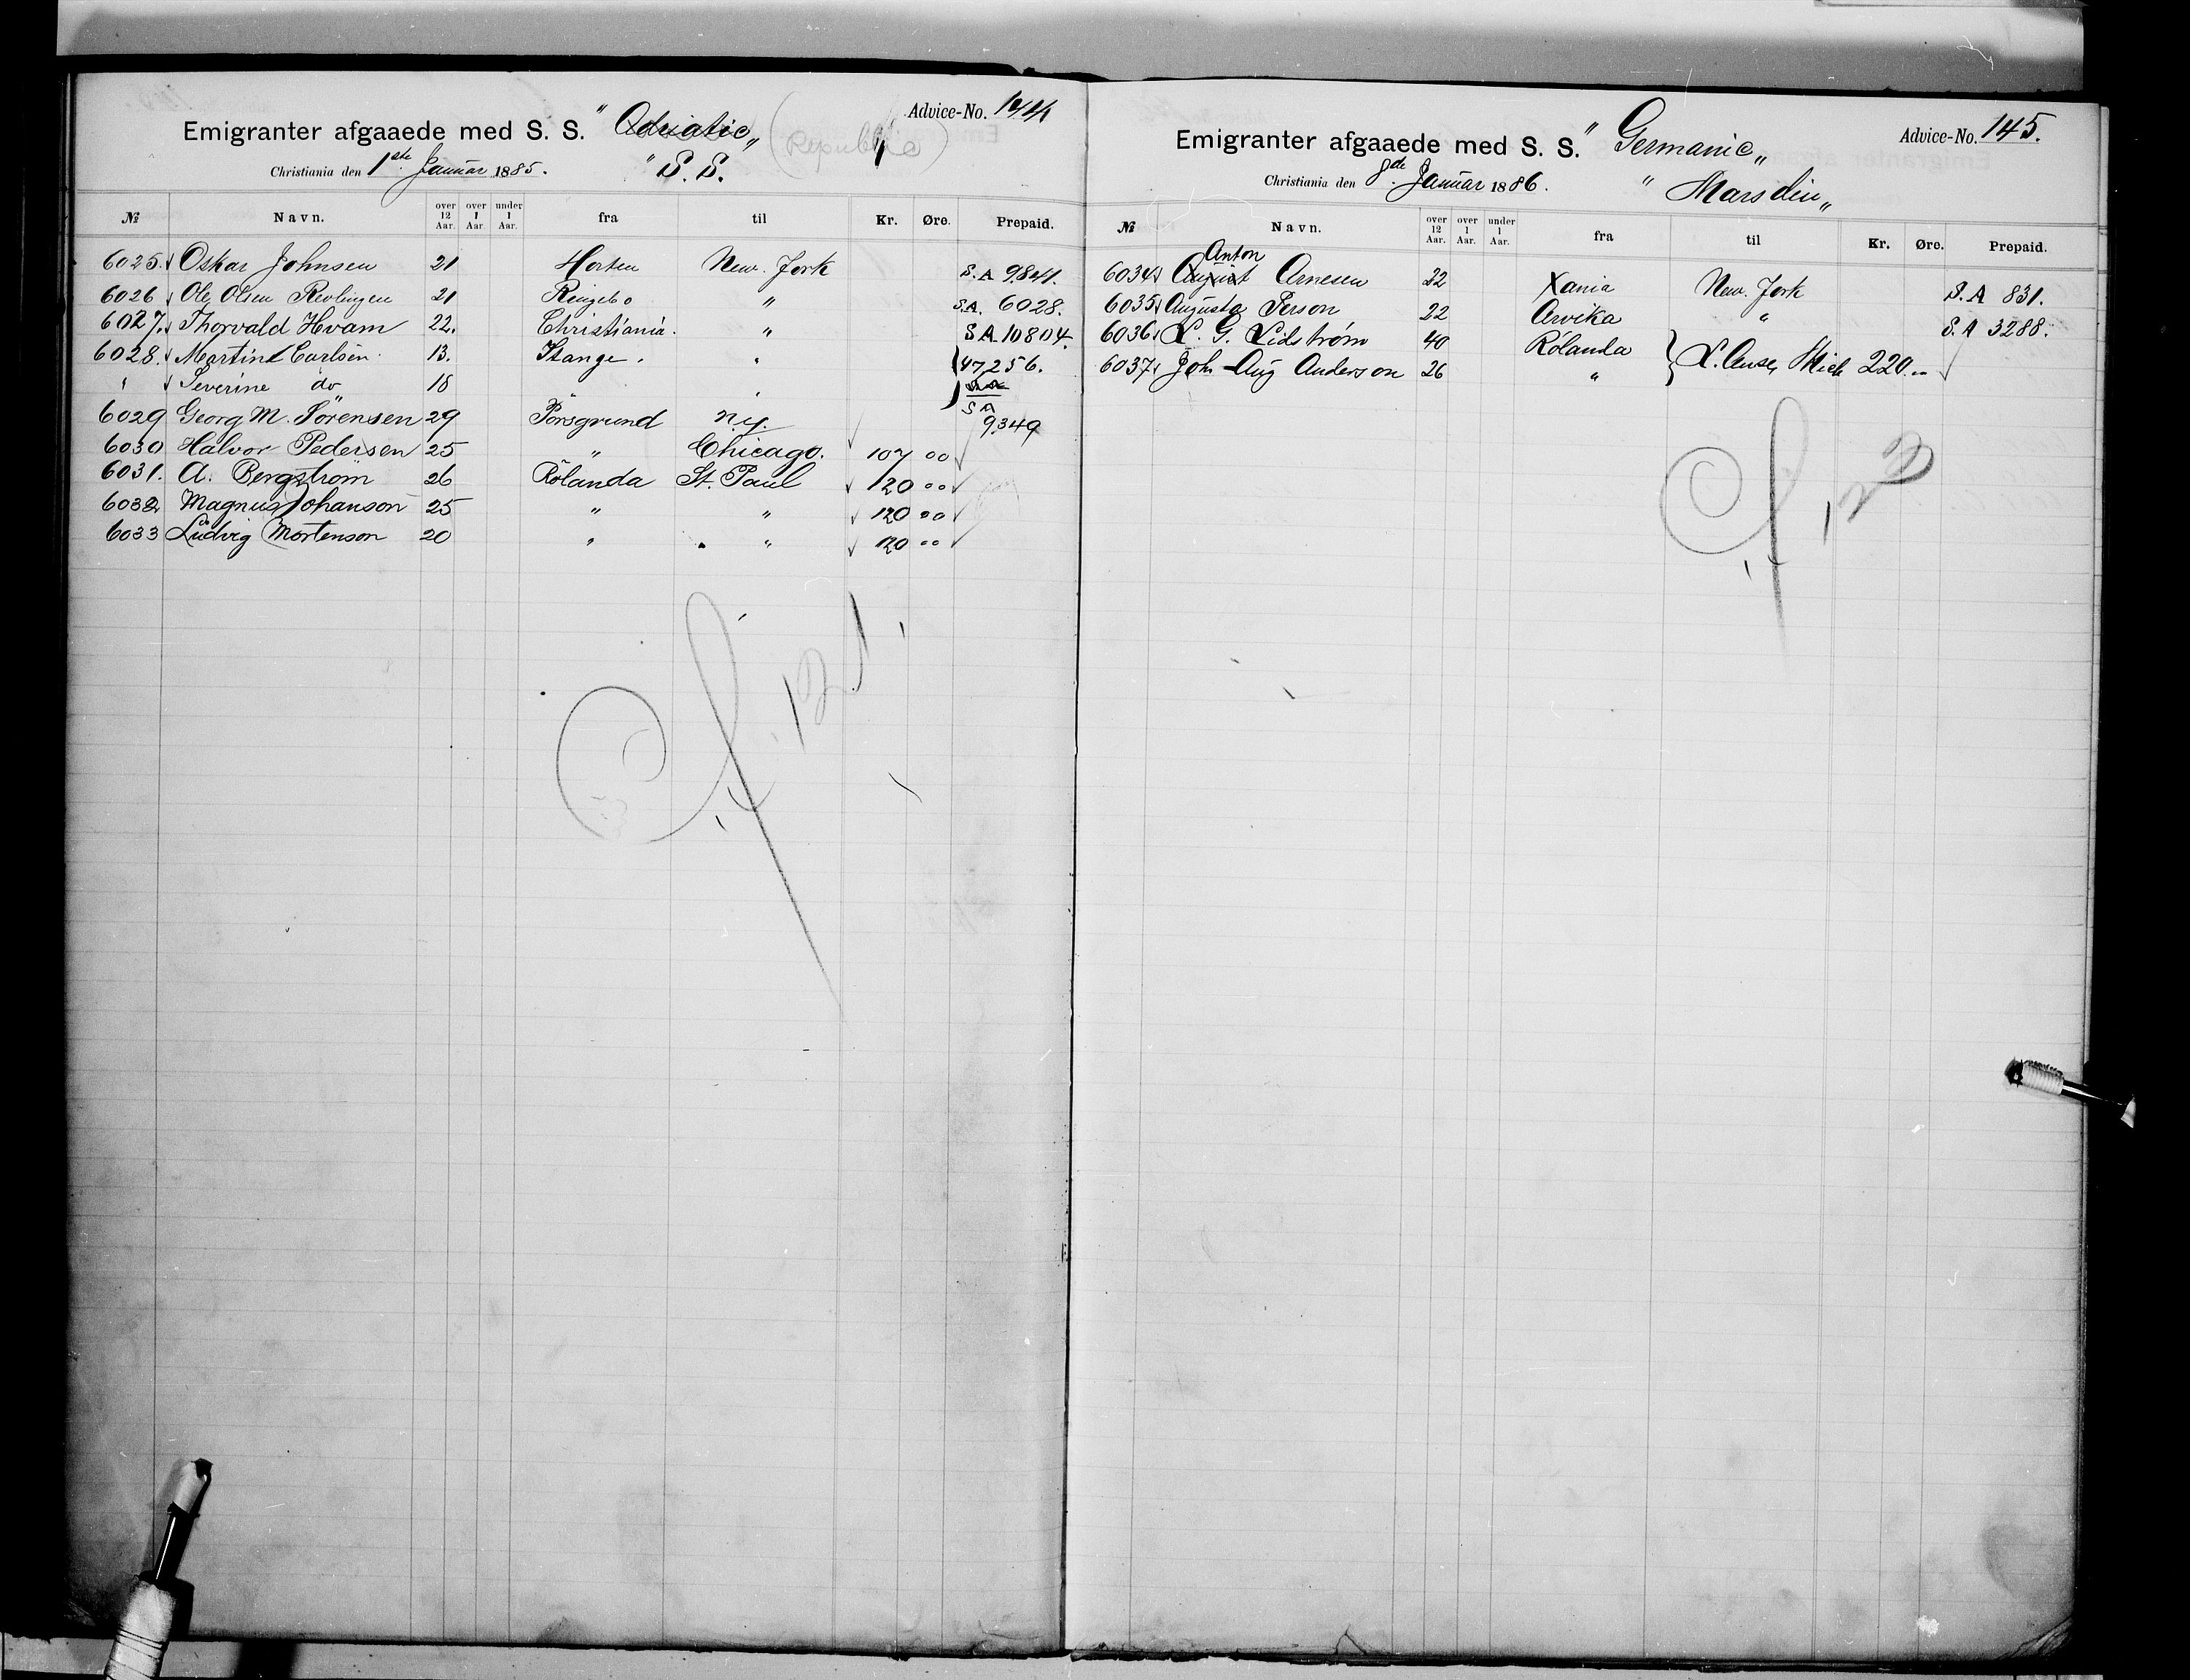 Advice-No. 144
Emigranter afgaaede med S. S. " Adriatic „ (Republic)
Christiania den 1ste Januar 1885. " S. S.
№ Navn. over 12 Aar. over 1 Aar. under 1 Aar. fra til Kr. Øre. Prepaid.
6025. Oskar Johnsen 21 Horten New. York S.A 9841.
6026 Ole Olsen Revlingen 21 Ringebo " S.A. 6028.
6027. Thorvald Hvam 22. Christiania. " S A 10804.
6028. Martine Carlsen 13. Stange. " 47,256.
" Severine do 18 " "
6029 Georg M. Sörensen 29 Porsgrund n.y. S A 9349
6030 Halvor Pedersen 25 " Chicago. 107 00
6031. A. Bergström 26 Rölanda St. Paul 120 00
6032 Magnus Johanson 25 " " 120 00
6033 Ludvig Mortenson 20 " " 120 00
f. 121
Advice-No. 145.
Emigranter afgaaede med S. S. " Germanic „
Christiania den 8de Januar 1886. " Marsdin „
№ Navn. over 12 Aar. over 1 Aar. under 1 Aar. fra til Kr. Øre. Prepaid.
Anton
6034 August Arnesen 22 Xania New. York S. A 831.
6035 Augusta Person 22 Arvika " S. A 3288.
6036 L. G. Lidstrøm 40 Rölanda
6037 Joh Aug Anderson 26 " Mich 220.